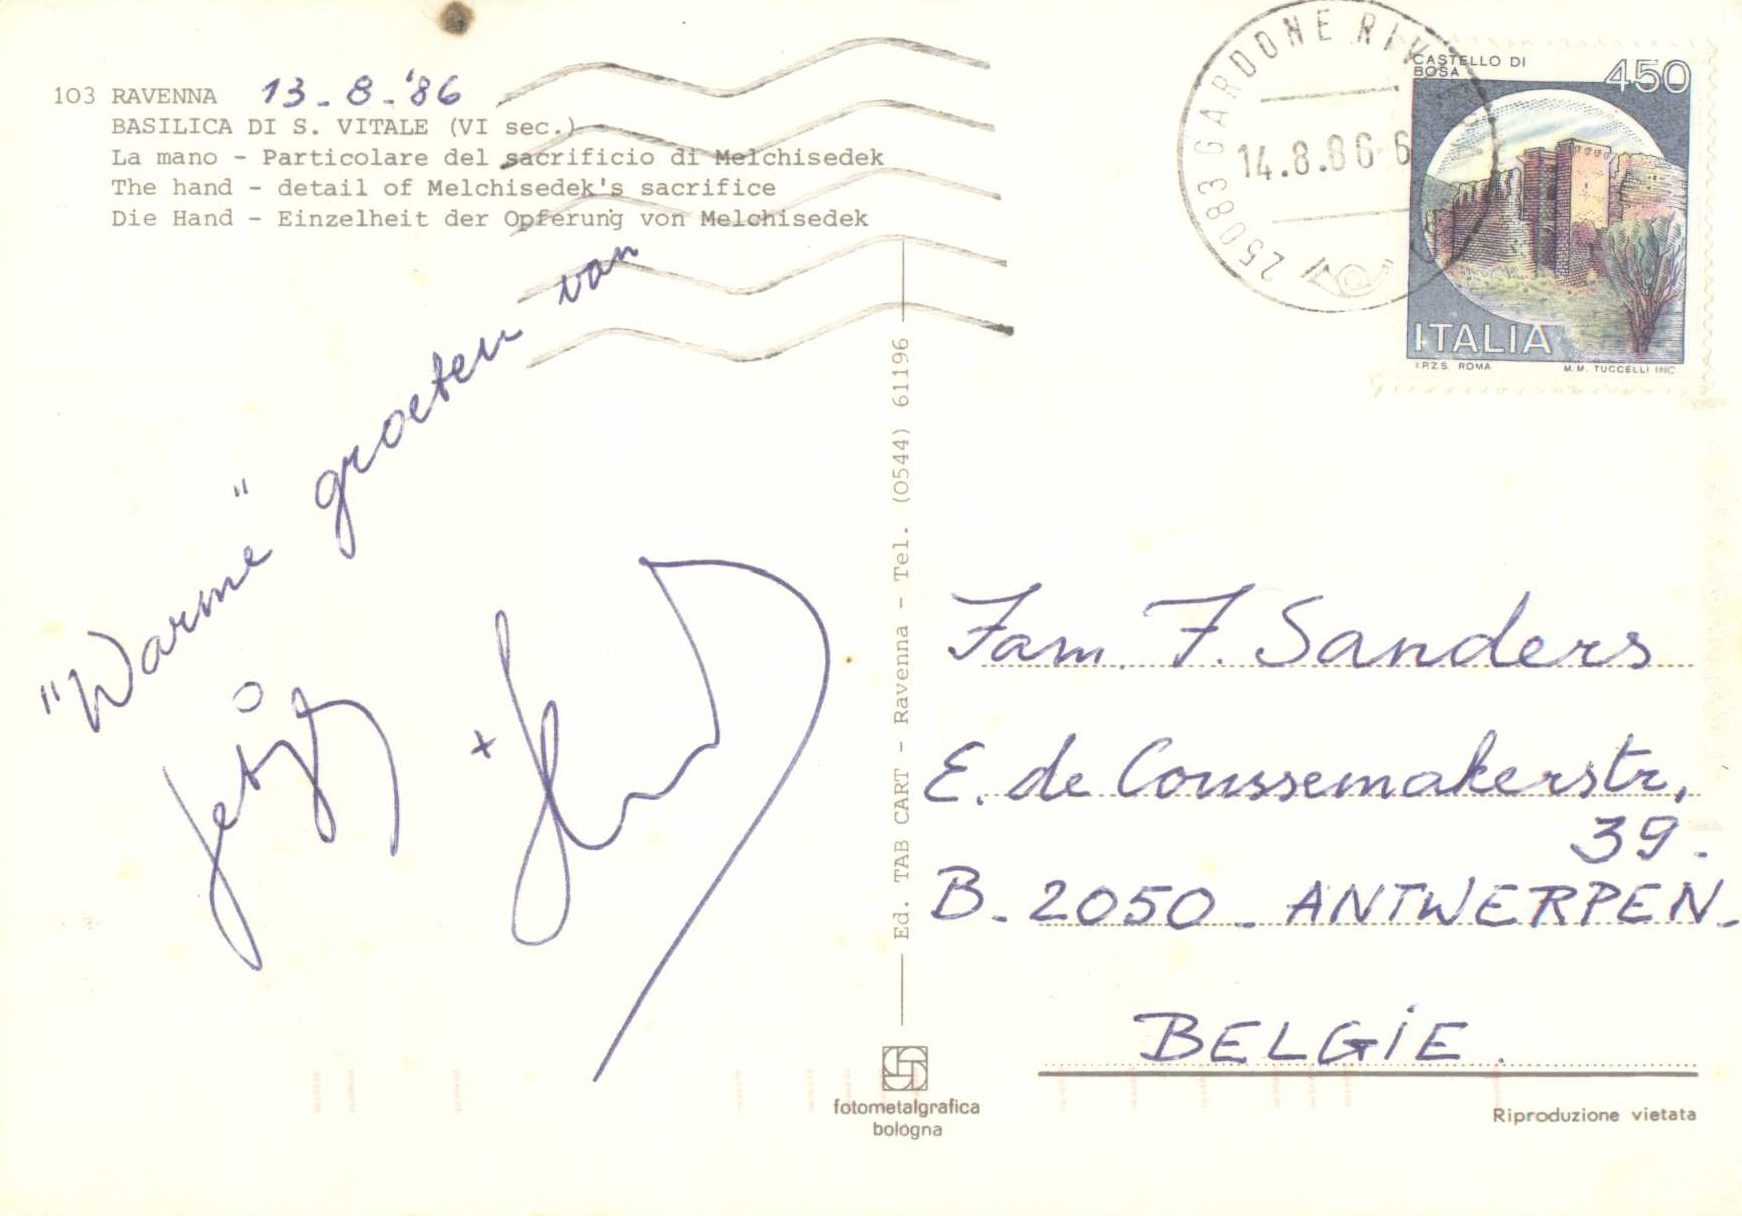 103 RAVENNA 13-8-'86
BASILICA DI S. VITALE (VI sec.)
La mano - Particolare del sacrificio di Melchisedek
The hand - detail of Melchisedek's sacrifice
Die Hand - Einzelheit der Opferung von Melchisedek
"Warme" groeten van
+
Ed. TAB CART - Ravenna - Tel. (0544) 61196
fotometalgrafica
bologna
25083 GARDONE RIV
14.8.86-6
CASTELLO DI
BOSA
450
ITALIA
I.P.Z.S. ROMA M.M. TUCCELLI INC.
Fam. F. Sanders
E. de Coussemakerstr,
39.
B-2050-ANTWERPEN-
BELGIE.
Riproduzione vietata